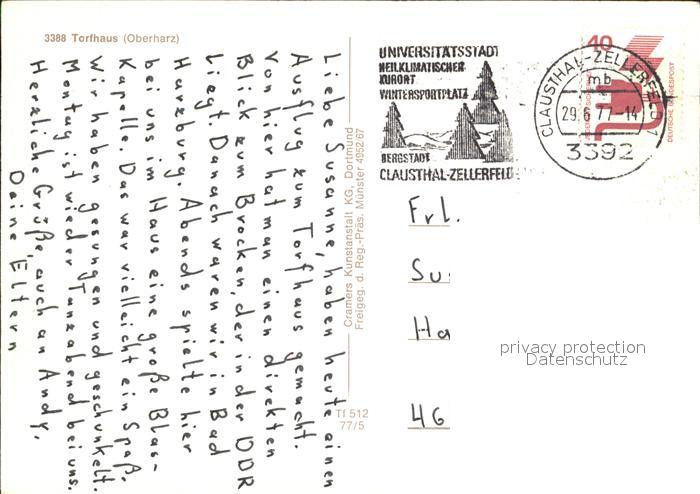 3388 Torfhaus (Oberharz)
Liebe Susanne, haben heute einen
Ausflug zum Torfhaus gemacht.
Von hier hat man einen direkten
Blick zum Brocken, der in der DDR
liegt. Danach waren wir in Bad
Harzburg. Abends spielte hier
bei uns im Haus eine große Blas-
Kapelle. Das war vielleicht ein Spaß.
Wir haben gesungen und geschunkelt.
Montag ist wieder Tanzabend bei uns.
Herzliche Grüße, auch an Andy,
Deine Eltern
Cramers Kunstanstalt KG, Dortmund
Freigeg. d. Reg.-Präs. Münster 4952/67
Tf 512
77/5
UNIVERSITÄTSSTADT
HEILKLIMATISCHER
KURORT
WINTERSPORTPLATZ
BERGSTADT
CLAUSTHAL-ZELLERFELD
CLAUSTHAL-ZELLERFELD 1
mb
29.6.77-14
3392
40
DEUTSCHE BUNDESPOST
Frl.
Su
Ha
46
privacy protection
Datenschutz